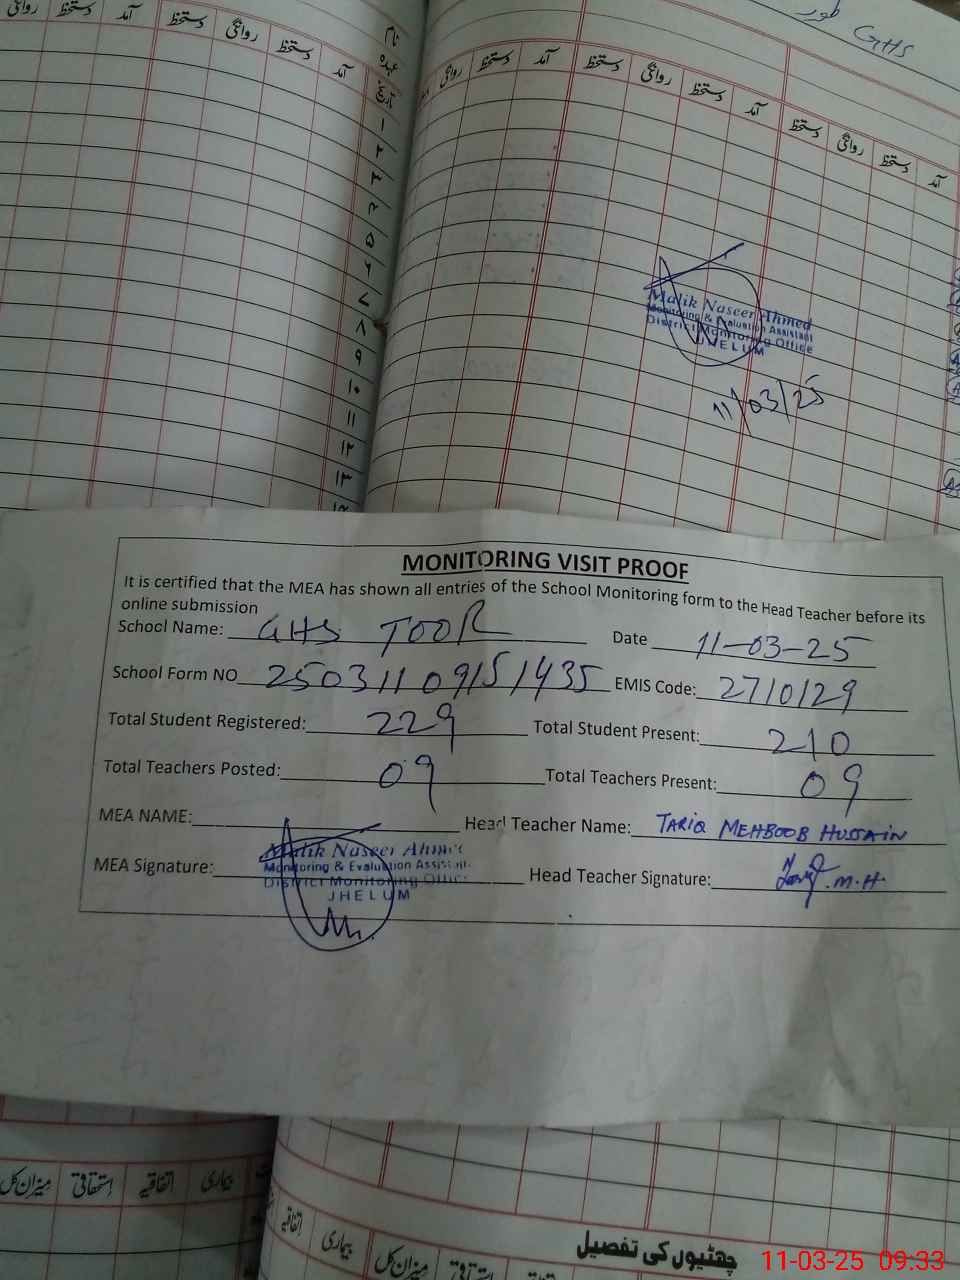 GHS طور
آمد دستخط روانگی دستخط آمد دستخط روانگی دستخط آمد دستخط روانگی
نام
عہدہ
تاریخ آمد دستخط روانگی دستخط آمد دستخط روانگی
۱
۲
۳
۴
۵
۶
۷
۸
۹
۱۰
۱۱
۱۲
۱۳
Malik Naseer Ahmed
Monitoring & Evaluation Assistant
District Monitoring Office
JHELUM
11/03/25
MONITORING VISIT PROOF
It is certified that the MEA has shown all entries of the School Monitoring form to the Head Teacher before its
online submission
School Name: GHS TOOR Date 11-03-25
School Form NO 25031109151435 EMIS Code: 2710129
Total Student Registered: 229 Total Student Present: 210
Total Teachers Posted: 09 Total Teachers Present: 09
MEA NAME: Head Teacher Name: TARIQ MEHBOOB HUSSAIN
MEA Signature: Head Teacher Signature: M.H
Malik Naseer Ahmed
Monitoring & Evaluation Assistant
District Monitoring Office
JHELUM
بیماری اتفاقیہ استحقاقی میزان کل
چھٹیوں کی تفصیل
اتفاقیہ بیماری میزان کل استحقاقی اتفاقیہ
11-03-25 09:33